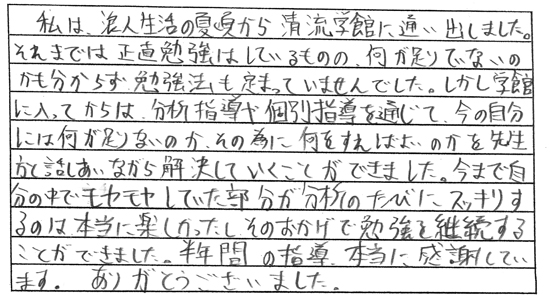 私は、浪人生活の夏頃から清流学館に通い出しました。
それまでは正直勉強はしているものの、何が足りてないの
かも分からず勉強法も定まっていませんでした。しかし学館
に入ってからは、分析指導や個別指導を通じて、今の自分
には何が足りないのか、その為に何をすればよいのかを先生
方と話しあいながら解決していくことができました。今まで自
分の中でモヤモヤしていた部分が分析のたびにスッキリす
るのは本当に楽しかったし、そのおかげで勉強を継続する
ことができました。半年間の指導、本当に感謝してい
ます。ありがとうございました。